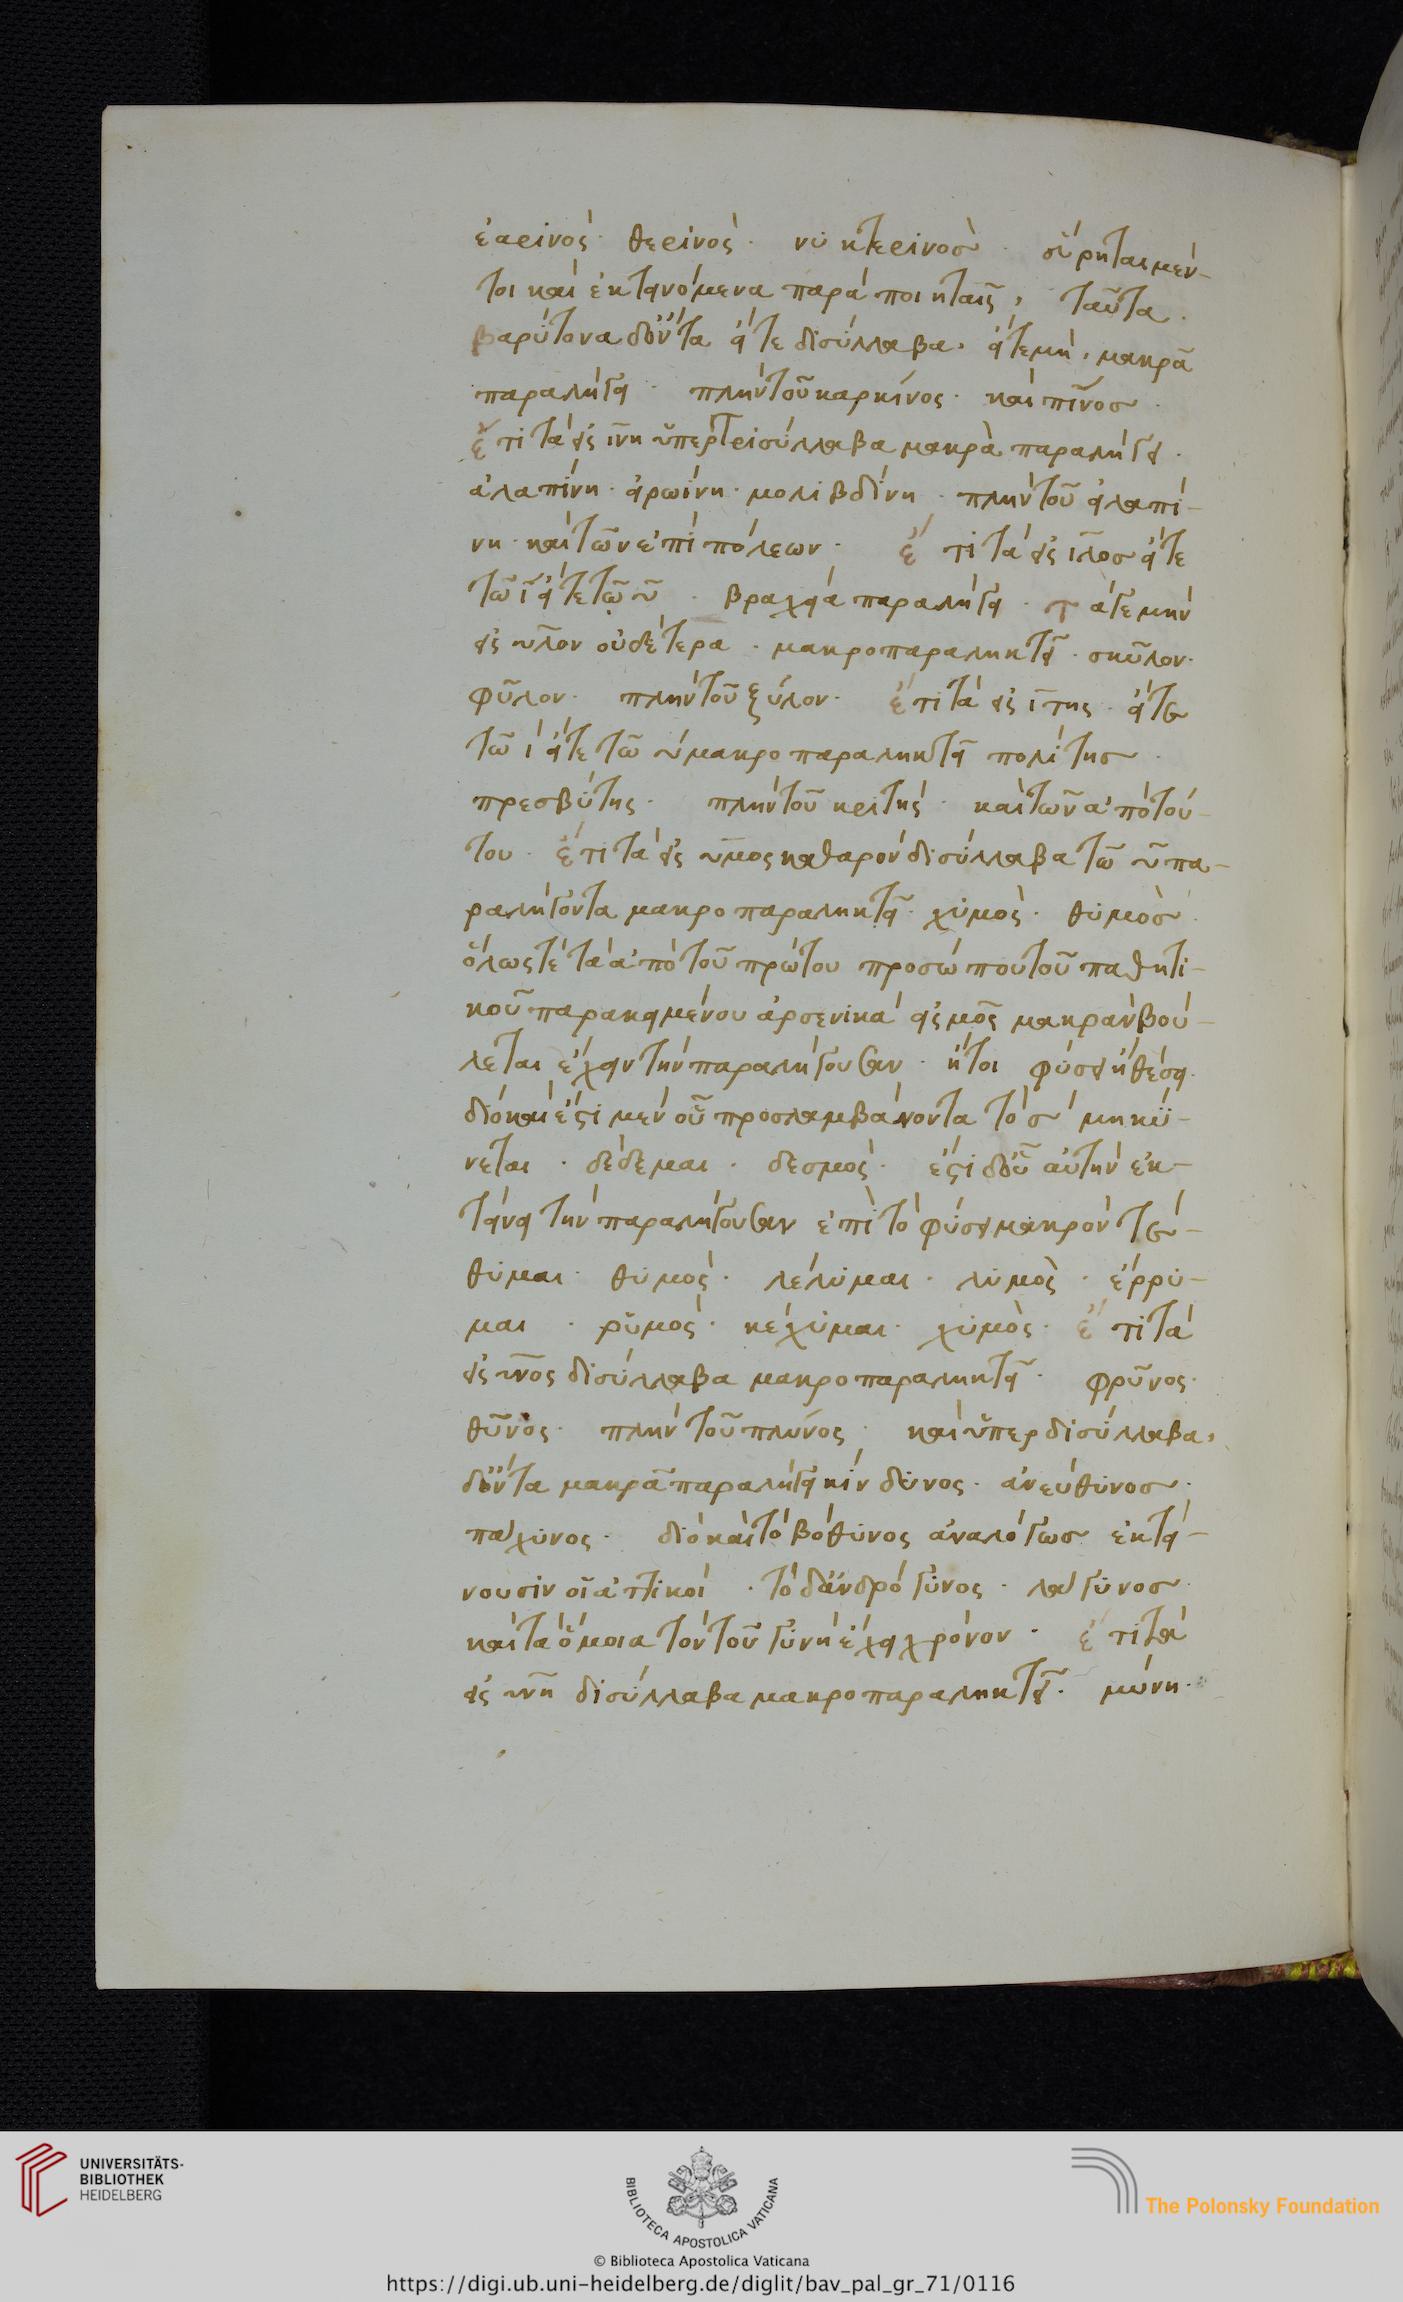 ἐαρινὸς· θερινὸς· νυκτερινὸσ· εὕρηται μέν-
τοι καὶ ἐκτεινόμενα παρὰ ποιηταῖς, ταῦτα·
βαρύτονα δ' ὄντα εἴτε δισύλλαβα, εἴτε μὴ, μακρᾶ
παραλήγει· πλὴν τοῦ καρκίνος· καὶ πῖνοσ·
ἔτι τὰ εἰς ινη ὑπερτρισύλλαβα μακρὰ παραλήγει·
ἀλαπίνη· ἀρωίνη· μολιβδίνη· πλὴν τοῦ εἰλαπί-
νη· καὶ τῶν ἐπὶ πόλεων· ἔτι τὰ εἰς ιλοσ εἴτε
τῶ ῑ εἴτε τῶ ῡ· βραχεία παραλήγει· τὰ γε μὴν
εἰς υλον οὐδέτερα· μακροπαραληκτεῖ· σκῦλον·
φῦλον· πλὴν τοῦ ξύλον· ἔτι τὰ εἰς ιτης· εἴτε
τῶ ι εἴτε τῶ υ μακροπαραληκτεῖ πολίτησ·
πρεσβύτης· πλὴν τοῦ κριτής· καὶ τῶν ἀπὸ τού-
του· ἔτι τὰ εἰς υμος καθαρὸν δισύλλαβα τῶ ῡ πα-
ραλήγοντα μακροπαραληκτεῖ· χυμὸς· θυμὸσ·
ὅλως τὲ τὰ ἀπὸ τοῦ πρώτου προσώπου τοῦ παθητι-
κοῦ παρακειμένου ἀρσενικὰ εἰς μος μακρὰν βού-
λεται ἔχειν τὴν παραλήγουσαν· ἤτοι φύσει ἢ θέσει·
διὸ καὶ ἔστι μὲν οὗ προσλαμβάνοντα τὸ σ μηκύ-
νεται· δέδεμαι· δεσμὸς· ἔστι δ' οὗ αὐτὴν ἐκ-
τείνει τὴν παραλήγουσαν ἐπὶ τὸ φύσει μακρὸν τέ-
θυμαι· θυμὸς· λέλυμαι· λυμὸς· ἔρρυ-
μαι· ρυμὸς· κέχυμαι· χυμὸς· ἔτι τὰ
εἰς υνος δισύλλαβα μακροπαραληκτεῖ· φρῦνος·
θῦνος· πλὴν τοῦ πλύνος· καὶ ὑπερδισύλλαβα,
δ' ὄντα μακρᾶ παραλήγει κίνδυνος· ἀνεύθυνοσ·
πάχυνος· διὸ καὶ τὸ βόθυνος ἀναλόγωσ ἐκτεί-
νουσιν οἱ ἀττικοί· τὸ δ' ἀνδρόγυνος· λάγυνοσ·
καὶ τὰ ὅμοια τὸν τοῦ γυνὴ ἔχει χρόνον· ἔτι τὰ
εἰς υνη δισύλλαβα μακροπαραληκτεῖ· μύνη·
UNIVERSITÄTS-
BIBLIOTHEK
HEIDELBERG
BIBLIOTECA APOSTOLICA VATICANA
The Polonsky Foundation
© Biblioteca Apostolica Vaticana
https://digi.ub.uni-heidelberg.de/diglit/bav_pal_gr_71/0116